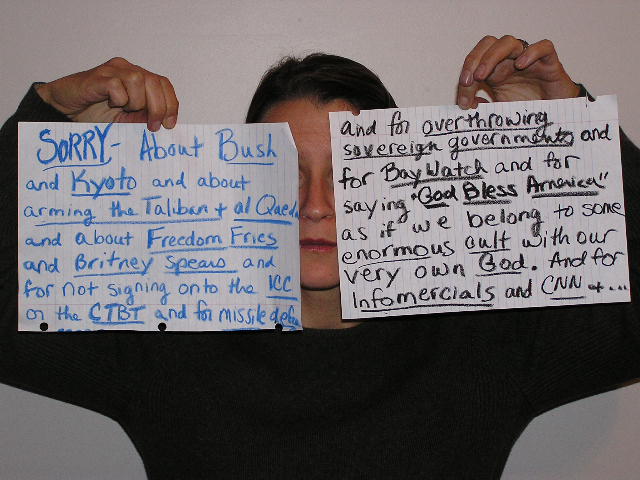 SORRY- About Bush
and Kyoto and about
arming the Taliban + al Qaeda
and about Freedom Fries
and Britney Spears and
for not signing onto the ICC
or the CTBT and for missile defe
and for overthrowing
sovereign governments and
for BayWatch and for
saying "God Bless America"
as if we belong to some
enormous cult with our
very own God. And for
Infomercials and CNN + ...